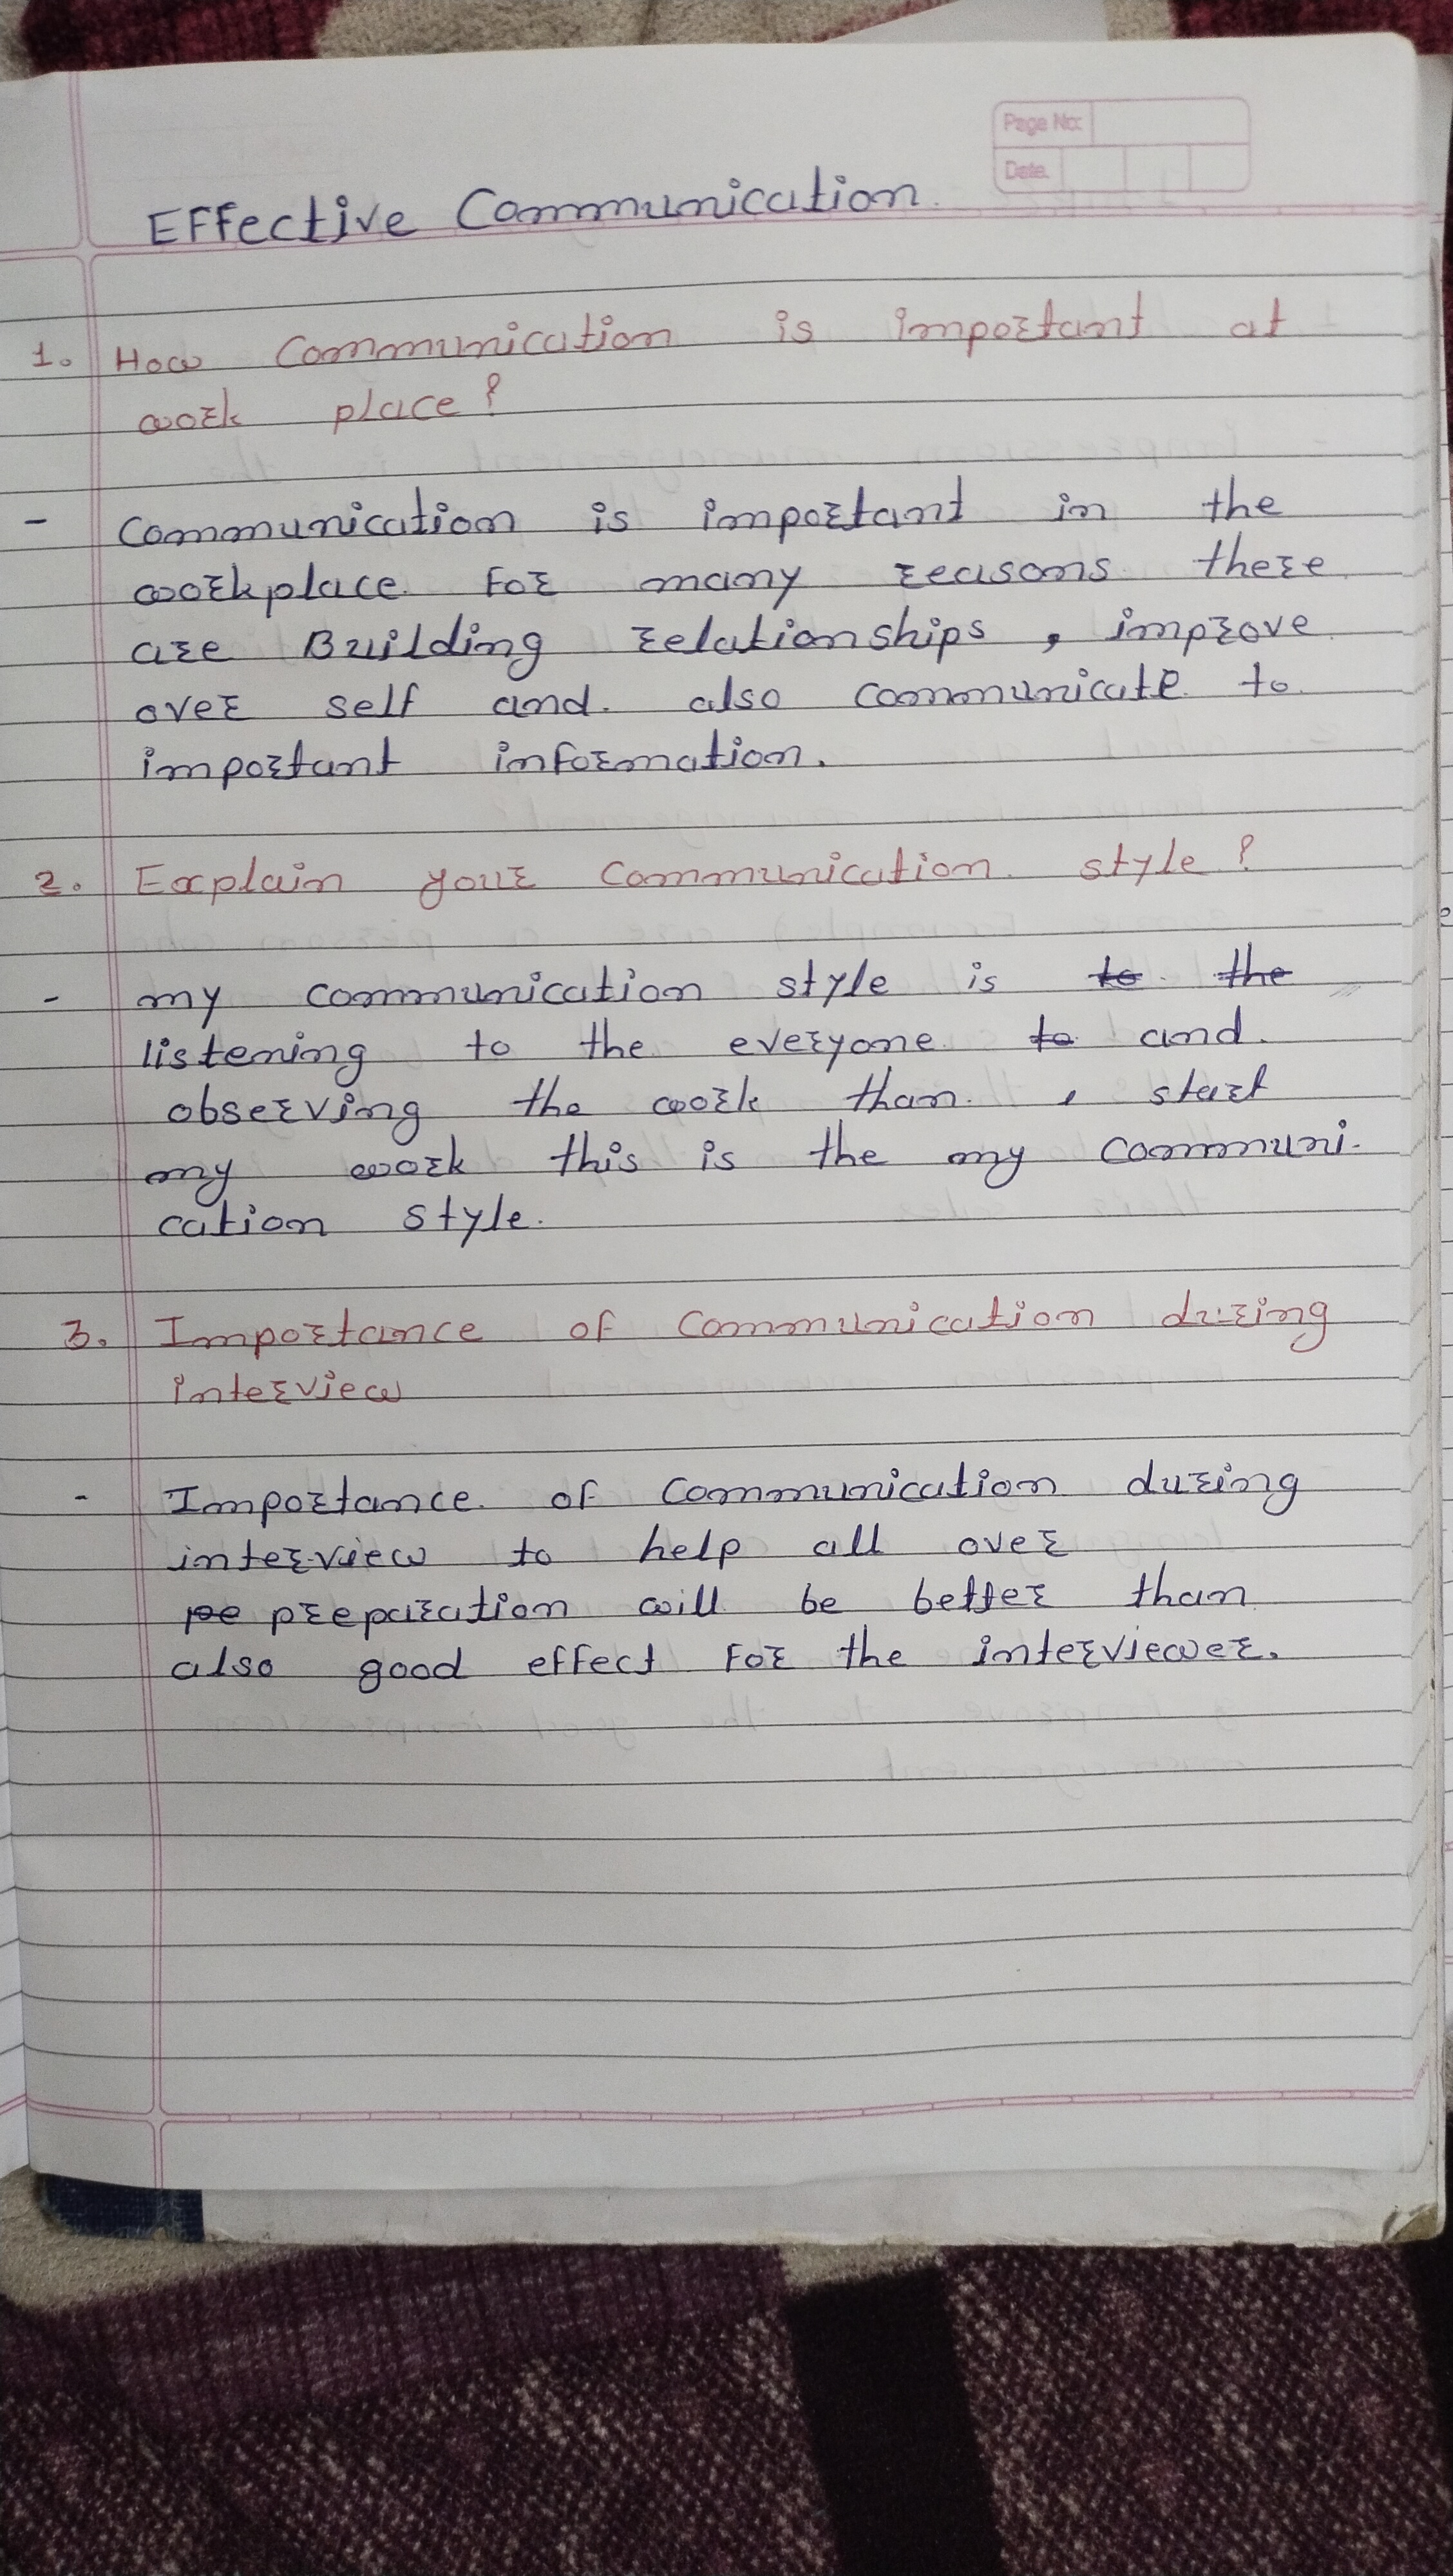 Page No:
Date.
Effective Communication.
1. How Communication is important at
work place?
- Communication is important in the
workplace. For many reasons there
are Building relationships, improve
over self and. also communicate to
important information.
2. Explain your communication style?
- my communication style is to the
listening to the everyone to and
observing the work than. I start
my work this is the my communi-
cation style.
3. Importance of communication during
interview
- Importance of communication during
interview to help all over
pe preparation will be better than
also good effect For the interviewer.